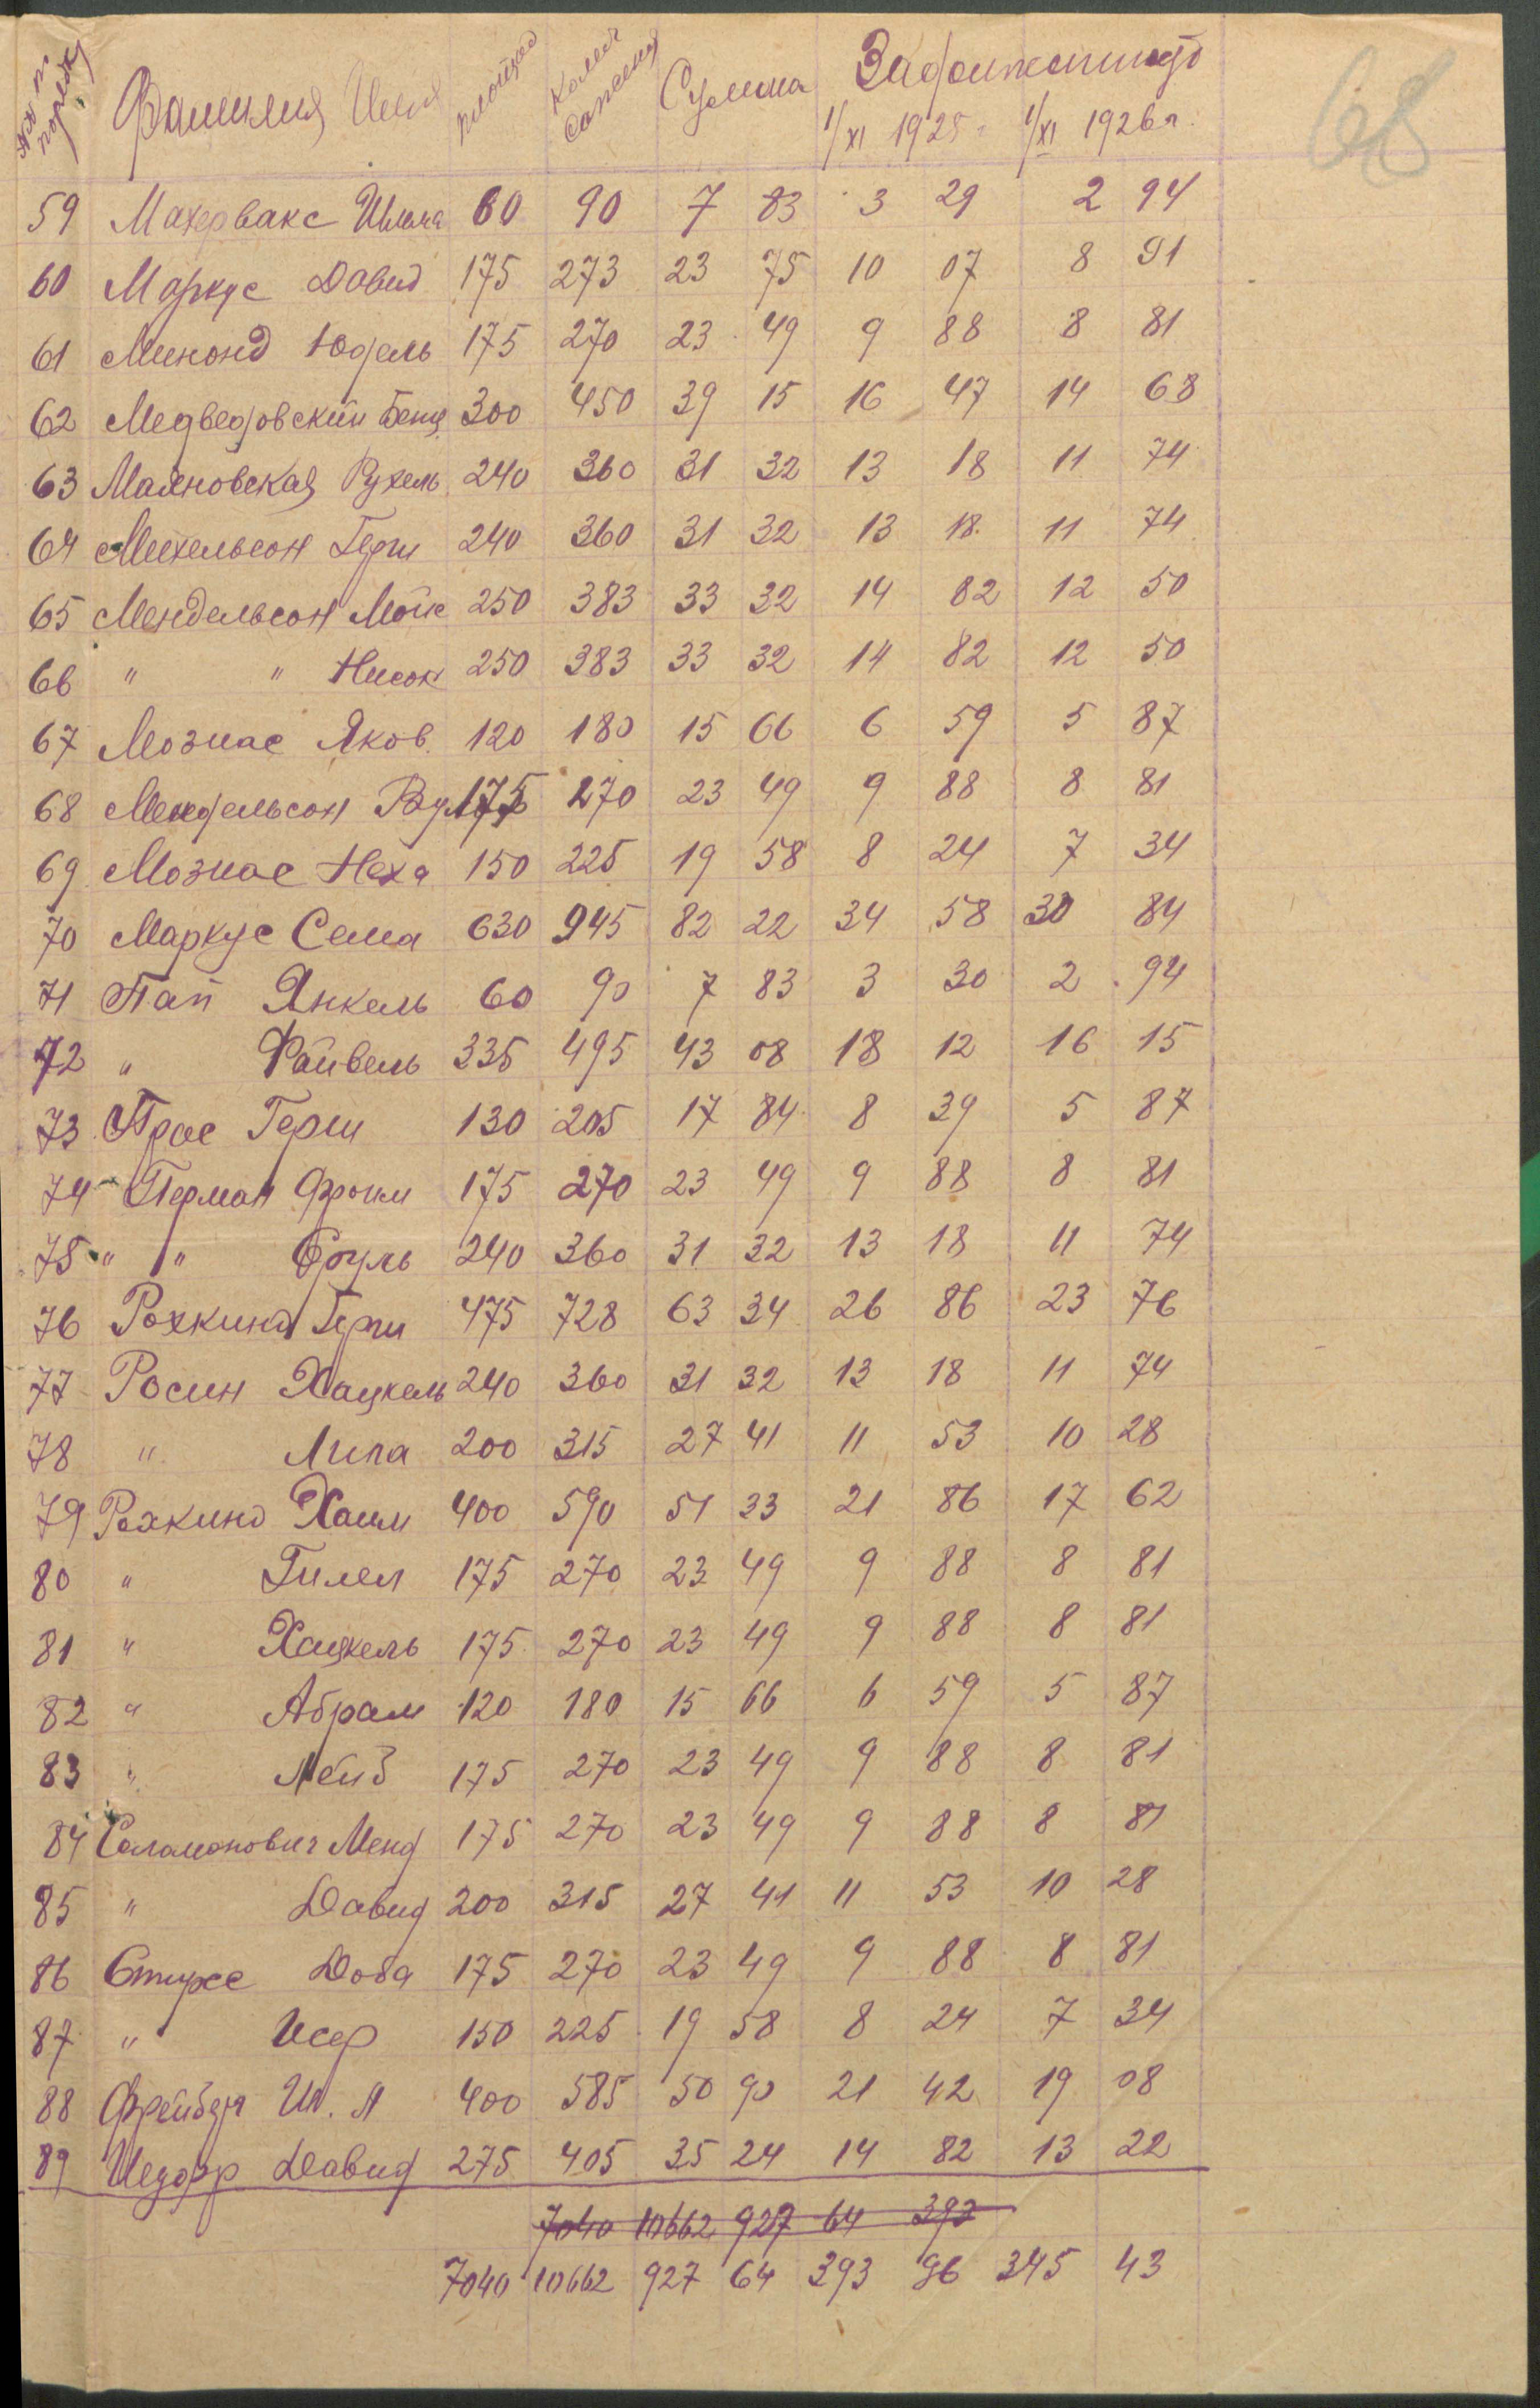 68
№№ по порядку Фамилия Имя площад Колич сажений Сумма Задолженность
1/XI 1925 г 1/XI 1926 г.
59 Махервакс Шлема 60 90 7 83 3 29 2 94
60 Маркус Давид 175 273 23 75 10 07 8 91
61 Минонд Юдель 175 270 23 49 9 88 8 81
62 Медведовский Бенц 300 450 39 15 16 47 14 68
63 Маяновская Рухель 240 360 31 32 13 18 11 74
64 Михельсон Герш 240 360 31 32 13 18 11 74
65 Мендельсон Мойс 250 383 33 32 14 82 12 50
66 " " Нисон 250 383 33 32 14 82 12 50
67 Мознас Яков. 120 180 15 66 6 59 5 87
68 Мендельсон 175 270 23 49 9 88 8 81
69 Мознас Неха 150 225 19 58 8 24 7 34
70 Маркус Сема 630 945 82 22 34 58 30 84
71 Пап Янкель 60 90 7 83 3 30 2 94
72 " Файвель 335 495 43 08 18 12 16 15
73 Прас Герш 130 205 17 84 8 39 5 87
74 Перман Фроим 175 270 23 49 9 88 8 81
75 " " Сруль 240 360 31 32 13 18 11 74
76 Рохкинд Герш 475 728 63 34 26 86 23 76
77 Росин Хацкель 240 360 31 32 13 18 11 74
78 " Липа 200 315 27 41 11 53 10 28
79 Рохкинд Хаим 400 590 51 33 21 86 17 62
80 " Гилел 175 270 23 49 9 88 8 81
81 " Хацкель 175 270 23 49 9 88 8 81
82 " Абрам 120 180 15 66 6 59 5 87
83 " Лейб 175 270 23 49 9 88 8 81
84 Саламонович Менд 175 270 23 49 9 88 8 81
85 " Давид 200 315 27 41 11 53 10 28
86 Доба 175 270 23 49 9 88 8 81
87 " Исер 150 225 19 58 8 24 7 34
88 400 585 50 90 21 42 19 08
89 Давид 275 405 35 24 14 82 13 22
7040 10662 927 64 393
7040 10662 927 64 393 96 345 43